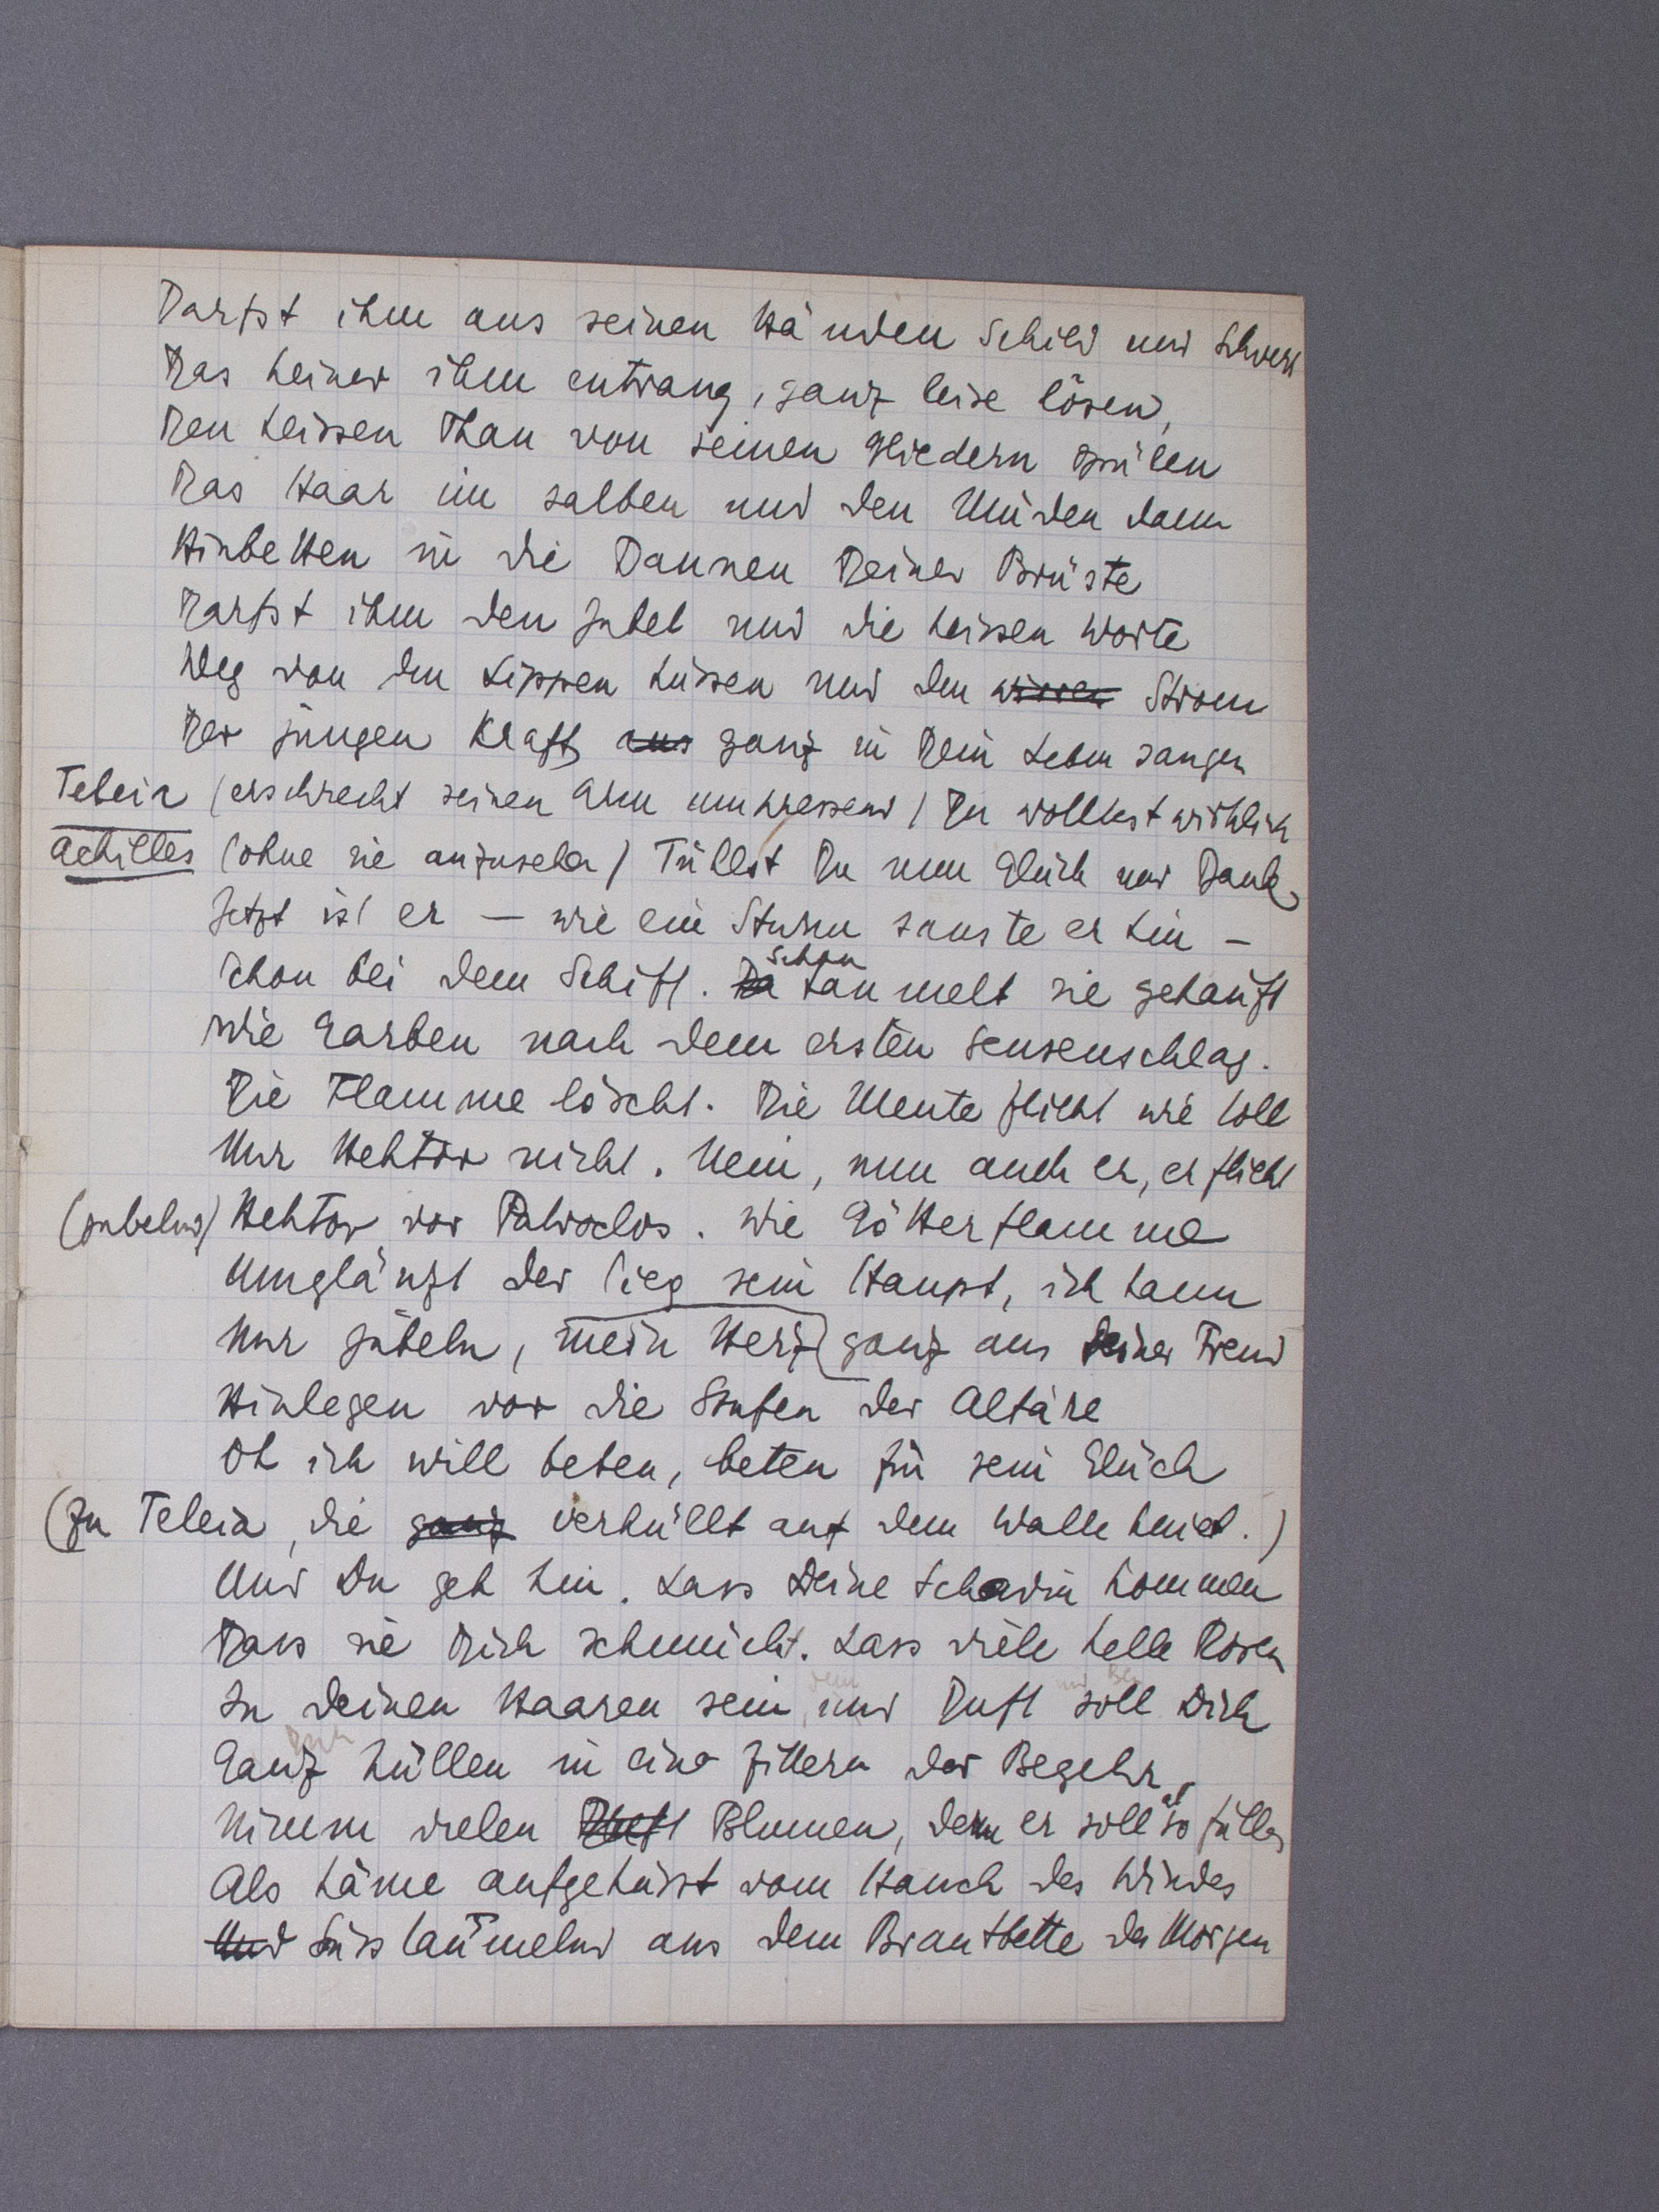 Darfst ihm aus seinen Händen Schild und Schwert
Das keiner ihm entrang, ganz leise lösen,
Den heissen Thau von seinen Gliedern spülen
Das Haar im salben und den Müden dann
Hinbetten in die Daunen Deiner Brüste
Darfst ihm den Jubel und die heissen Worte
Weg von den Lippen küssen und den wirren Strom
Der jungen Kraft aus ganz in Dein Leben saugen
Teleia (erschreckt seinen Arm umpressend) Du wolltest wirklich
Achilles (ohne sie anzusehen) Fühlst Du nun Glück und Dank
Jetzt ist er – wie ein Sturm sauste er hin –
Schon bei dem Schiff. Da Schon taumelt sie gehäuft
Wie Garben nach dem ersten Sensenschlag.
Die Flamme löscht. Die Meute flieht wie toll
Nur Hektor nicht. Nein, nun auch er, er flieht
(jubelnd) Hektor vor Patroclos. Wie Götterflamme
Umglänzt der Sieg sein Haupt, ich kann
Nur jubeln, mein Herz ganz aus seiner Freud
Hinlegen vor die Stufen der Altäre
Oh ich will beten, beten für sein Glück
(zu Teleia, die ganz verhüllt auf dem Walle kniet.)
Und Du geh hin. Lass Deine Sclavin kommen
Dass sie Dich schmückt. Lass viele helle Rosen
In deinen Haaren sein, und Duft soll Dich
Ganz hüllen in ein Zittern der Begehr
Nimm vielen Duft Blumen, denn er soll es so fühlen
Als käme aufgeküsst vom Hauch des Windes
Und Süss taumelnd aus dem Brautbette der Morgen